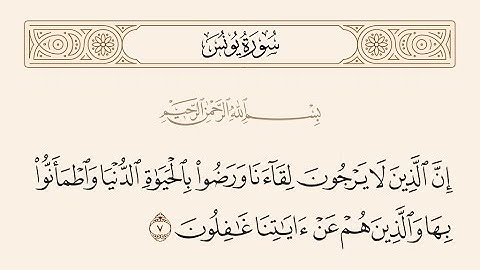 سُورَةُ يُونُسَ
بِسْمِ ٱللَّهِ ٱلرَّحْمَٰنِ ٱلرَّحِيمِ
إِنَّ ٱلَّذِينَ لَا يَرْجُونَ لِقَآءَنَا وَرَضُوا۟ بِٱلْحَيَوٰةِ ٱلدُّنْيَا وَٱطْمَأَنُّوا۟
بِهَا وَٱلَّذِينَ هُمْ عَنْ ءَايَٰتِنَا غَٰفِلُونَ ٧